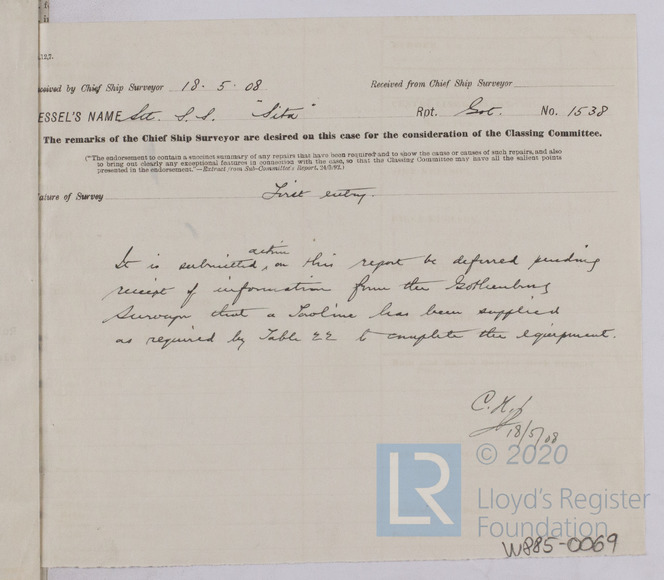 Received by Chief Ship Surveyor 18·5·08 Received from Chief Ship Surveyor
VESSEL'S NAME S.S. "Sita" Rpt. Got. No. 1538
The remarks of the Chief Ship Surveyor are desired on this case for the consideration of the Classing Committee.
("The endorsement to contain a succinct summary of any repairs that have been required and to show the cause or causes of such repairs, and also
to bring out clearly any exceptional features in connection with the case, so that the Classing Committee may have all the salient points
presented in the endorsement."—Extract from Sub-Committee's Report, 24/3/92.)
Nature of Survey First entry.
It is submitted, action on this report be deferred pending
receipt of information from the Gothenburg
Surveyor that a Towline has been supplied
as required by Table 22 to complete the equipment.
18/5/08
© 2020
LR
Lloyd's Register
Foundation
W885-0069